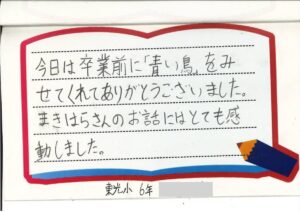 今日は卒業前に「青い鳥」をみ
せてくれてありがとうございました。
まきはらさんのお話にはとても感
動しました。
東光小 6年